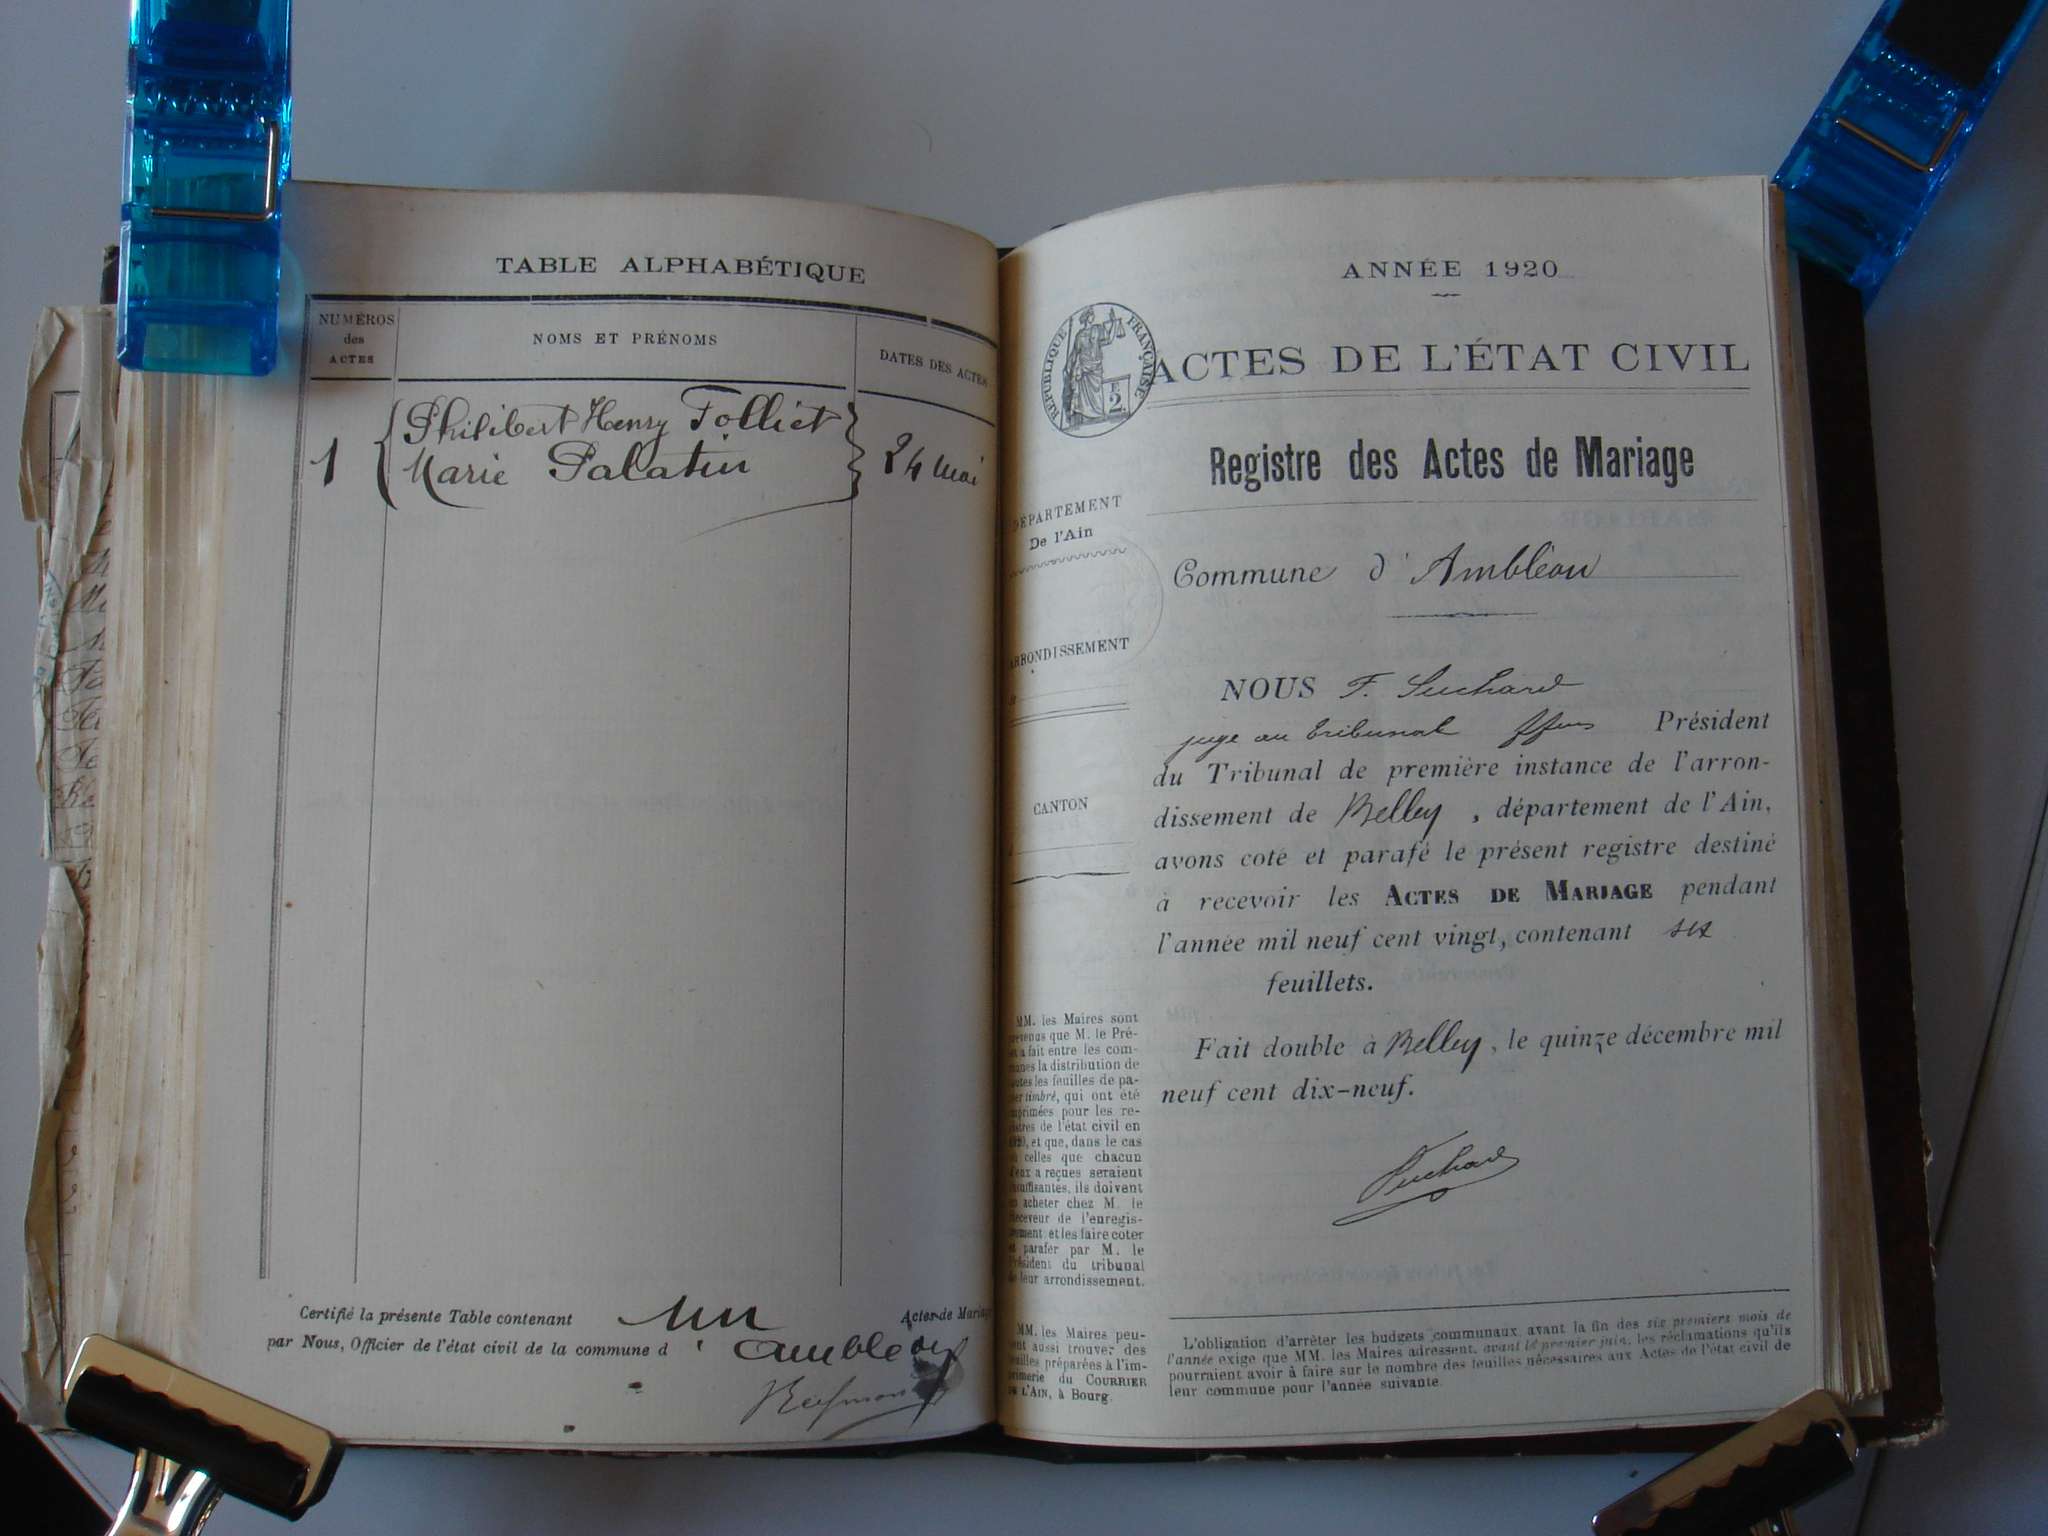 TABLE ALPHABÉTIQUE
NUMÉROS
des
ACTES
NOMS ET PRÉNOMS
DATES DES ACTES
1
Philibert Henry Folliet
Marie Palatin
24 mai
Certifié la présente Table contenant un Actes de Mariage
par Nous, Officier de l'état civil de la commune d'Ambléon
ANNÉE 1920
RÉPUBLIQUE FRANÇAISE
E
2
ACTES DE L'ÉTAT CIVIL
Registre des Actes de Mariage
DÉPARTEMENT
De l'Ain
ARRONDISSEMENT
CANTON
Commune d'Ambléon
NOUS F. Suchard
juge au tribunal ffons Président
du Tribunal de première instance de l'arron-
dissement de Belley, département de l'Ain,
avons coté et parafé le présent registre destiné
à recevoir les ACTES DE MARIAGE pendant
l'année mil neuf cent vingt, contenant six
feuillets.
Fait double à Belley, le quinze décembre mil
neuf cent dix-neuf.
Suchard
MM. les Maires sont
prévenus que M. le Pré-
fet a fait entre les com-
munes la distribution de
toutes les feuilles de pa-
pier timbré, qui ont été
imprimées pour les re-
gistres de l'état civil en
1920, et que, dans le cas
où celles que chacun
d'eux a reçues seraient
insuffisantes, ils doivent
en acheter chez M. le
Receveur de l'enregis-
trement et les faire coter
et parafer par M. le
Président du tribunal
de leur arrondissement.
MM. les Maires peu-
vent aussi trouver des
feuilles préparées à l'im-
primerie du COURRIER
DE L'AIN, à Bourg.
L'obligation d'arrêter les budgets communaux avant la fin des six premiers mois de
l'année exige que MM. les Maires adressent, avant le premier juin, les réclamations qu'ils
pourraient avoir à faire sur le nombre des feuilles nécessaires aux Actes de l'état civil de
leur commune pour l'année suivante.